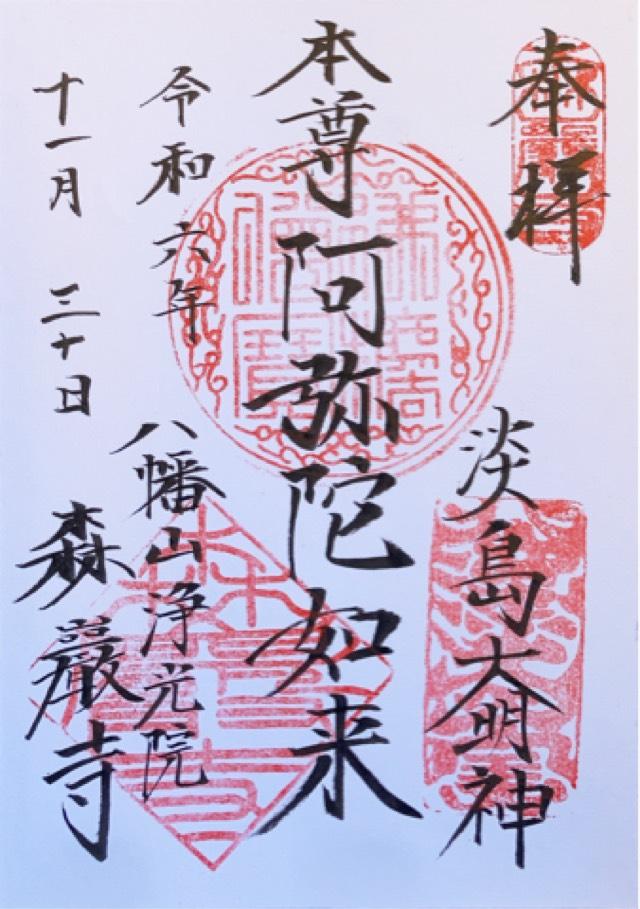 奉拝
淡島大明神
本尊阿弥陀如来
令和六年
十一月三十日
八幡山浄光院
森巖寺